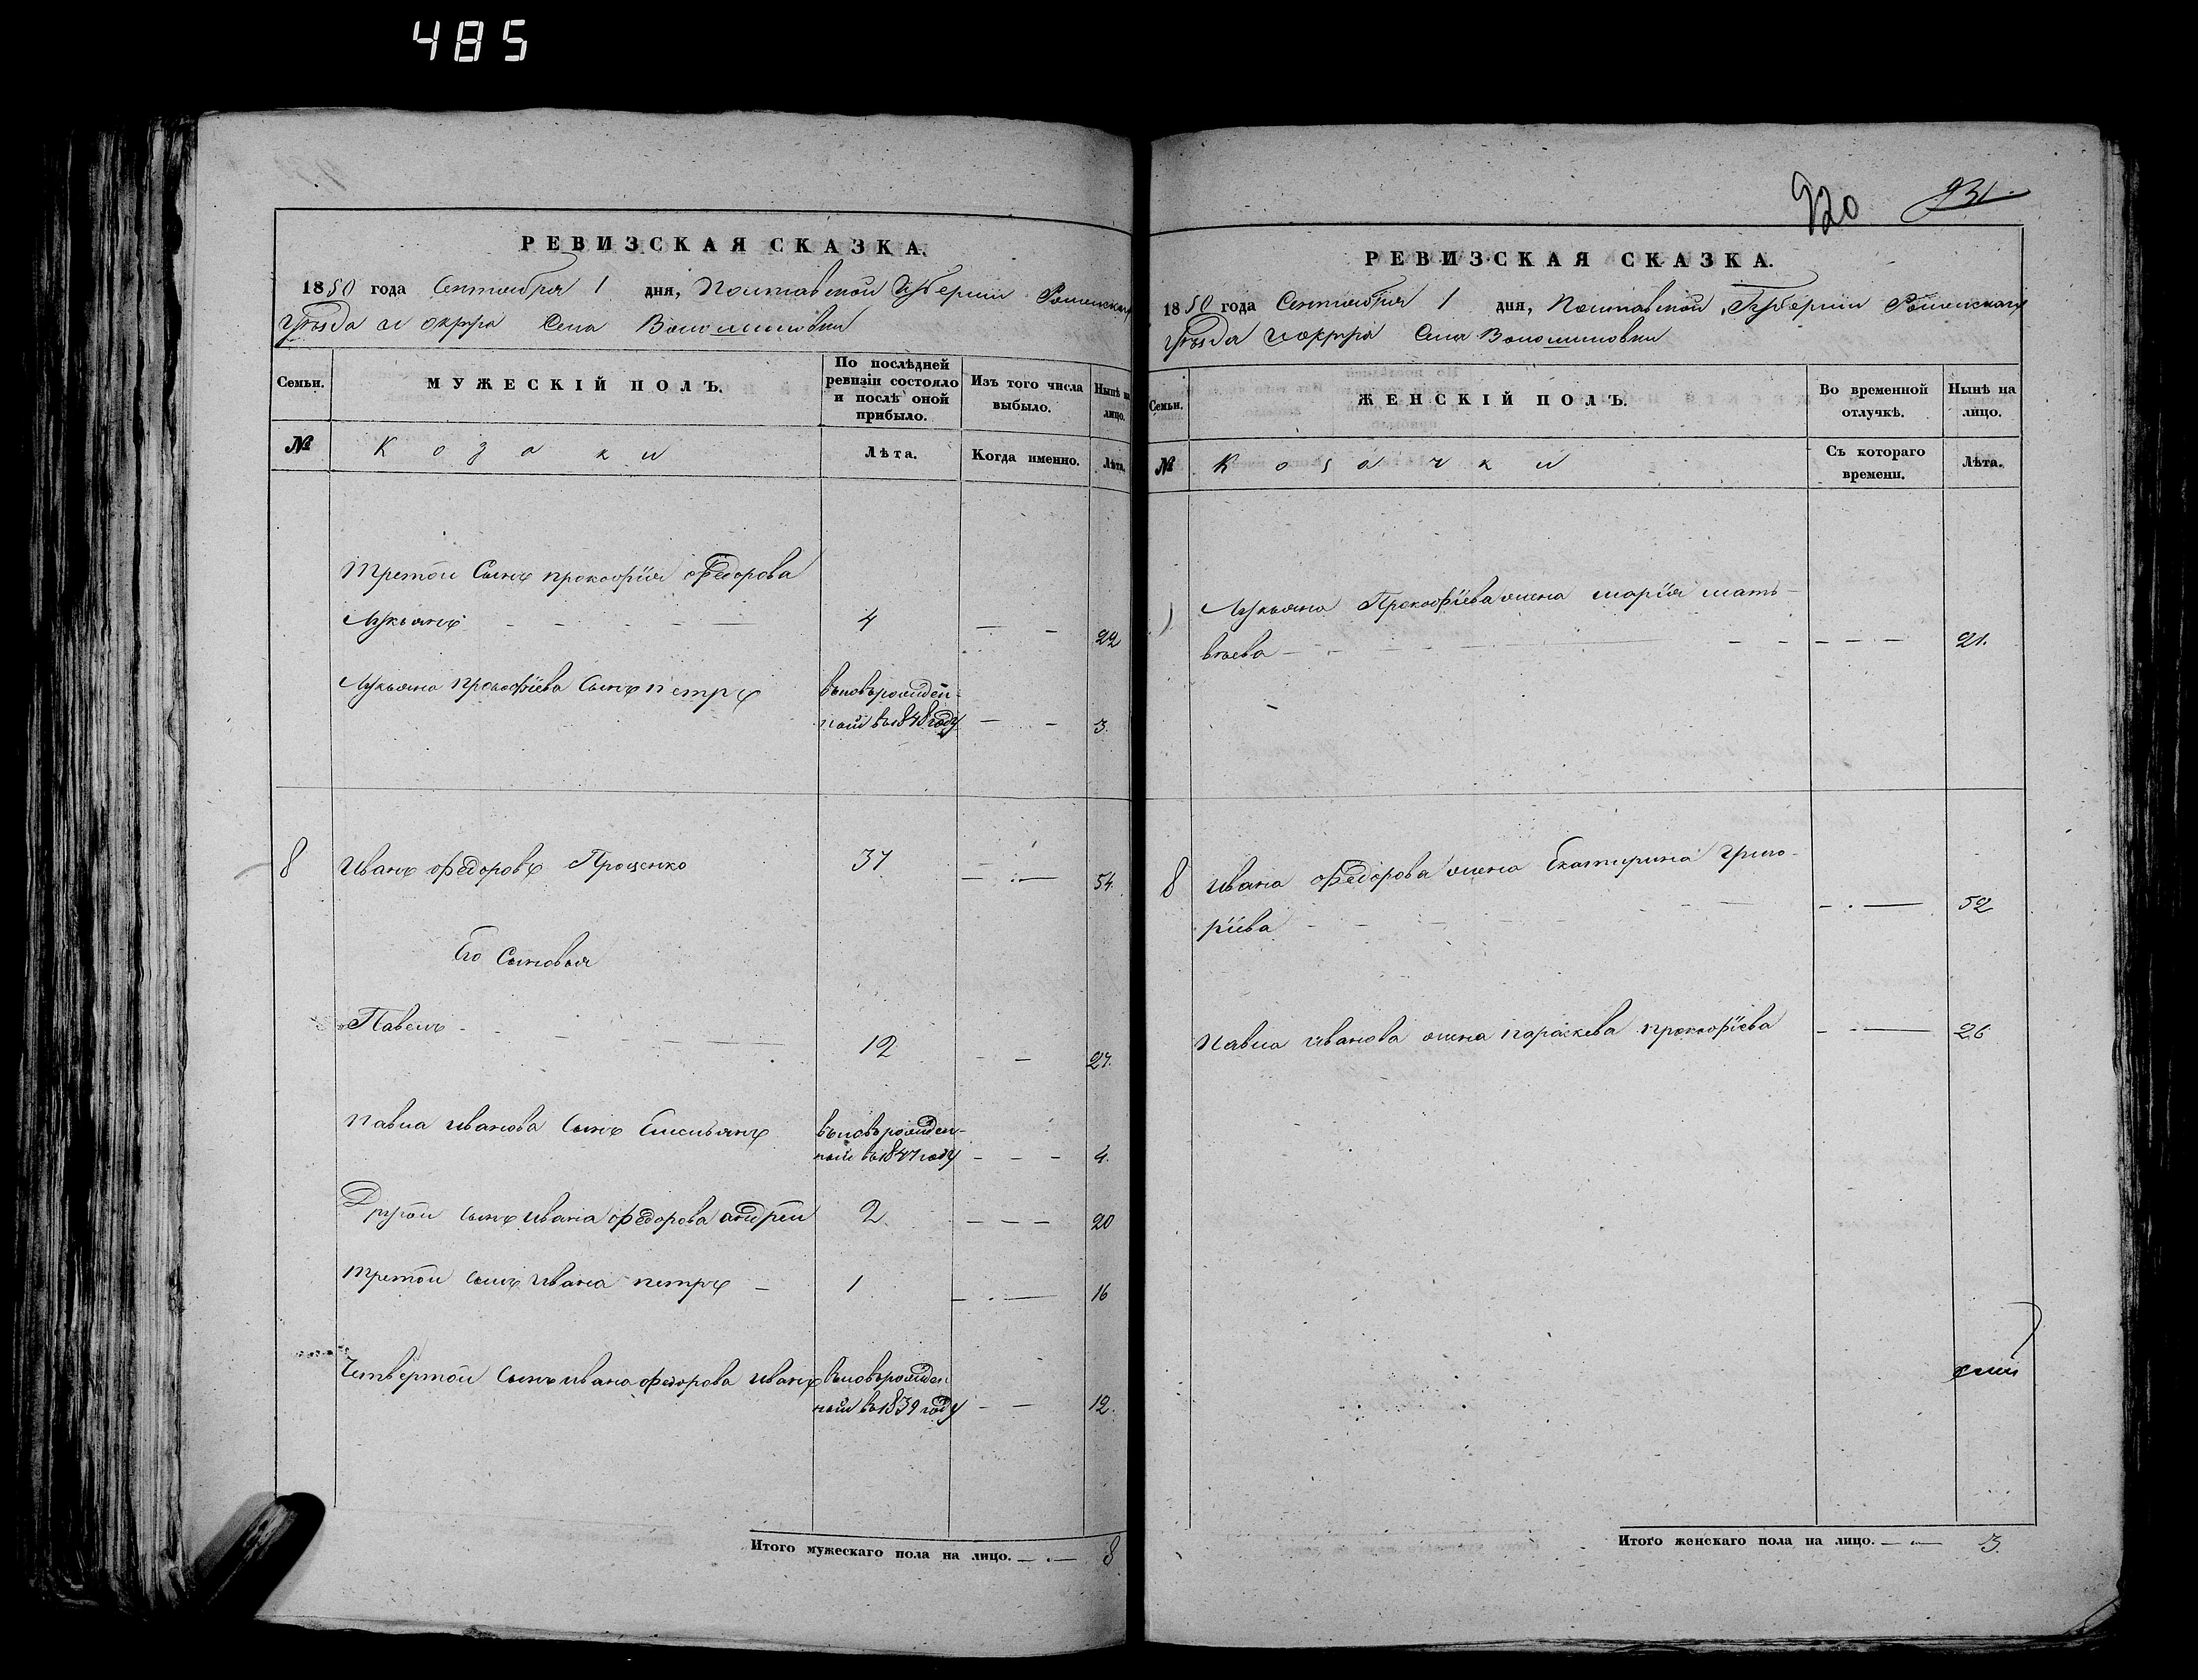 485
РЕВИЗСКАЯ СКАЗКА.
1850 года Сентября 1 дня, Полтавской Губернии Роменскаго
Уѣзда и округа Села Волошиновки
Семьи.
МУЖЕСКІЙ ПОЛЪ.
По послѣдней ревизіи состояло и послѣ оной прибыло.
Изъ того числа выбыло.
Нынѣ на лицо.
№
Козаки
Лѣта.
Когда именно.
Лѣта.
Третой Сынъ прокофія Федорова
Лукьянъ 4 22
Лукьяна прокофіева Сынъ петръ вновърожден-
ной въ 1848 году 3.
8 Иванъ Федоровъ Проценко 37 54.
Его Сыновья
Павелъ 12 27.
Павла иванова Сынъ Емельянъ вновърожден-
ной въ 1847 году 4.
Другой сынъ ивана федорова андрей 2 20
третой сынъ ивана петръ 1 16
Четвертой Сынъ ивана федорова иванъ вновърожден
ной въ 1839 году 12.
Итого мужескаго пола на лицо. 8
920 931
РЕВИЗСКАЯ СКАЗКА.
1850 года Сентября 1 дня, Полтавской Губернии Роменскаго
Уѣзда и округа Села Волошиновки
Семьи.
ЖЕНСКІЙ ПОЛЪ.
Во временной отлучкѣ.
Нынѣ на лицо.
№
Козачки
Съ котораго времени.
Лѣта.
Лукьяна Прокофіева жена марія мать-
вѣева 21.
8 ивана Федорова жена Екатерина Григо-
ріева 52
Павла иванова жена параскева прокофіева 26
Итого женскаго пола на лицо. 3.